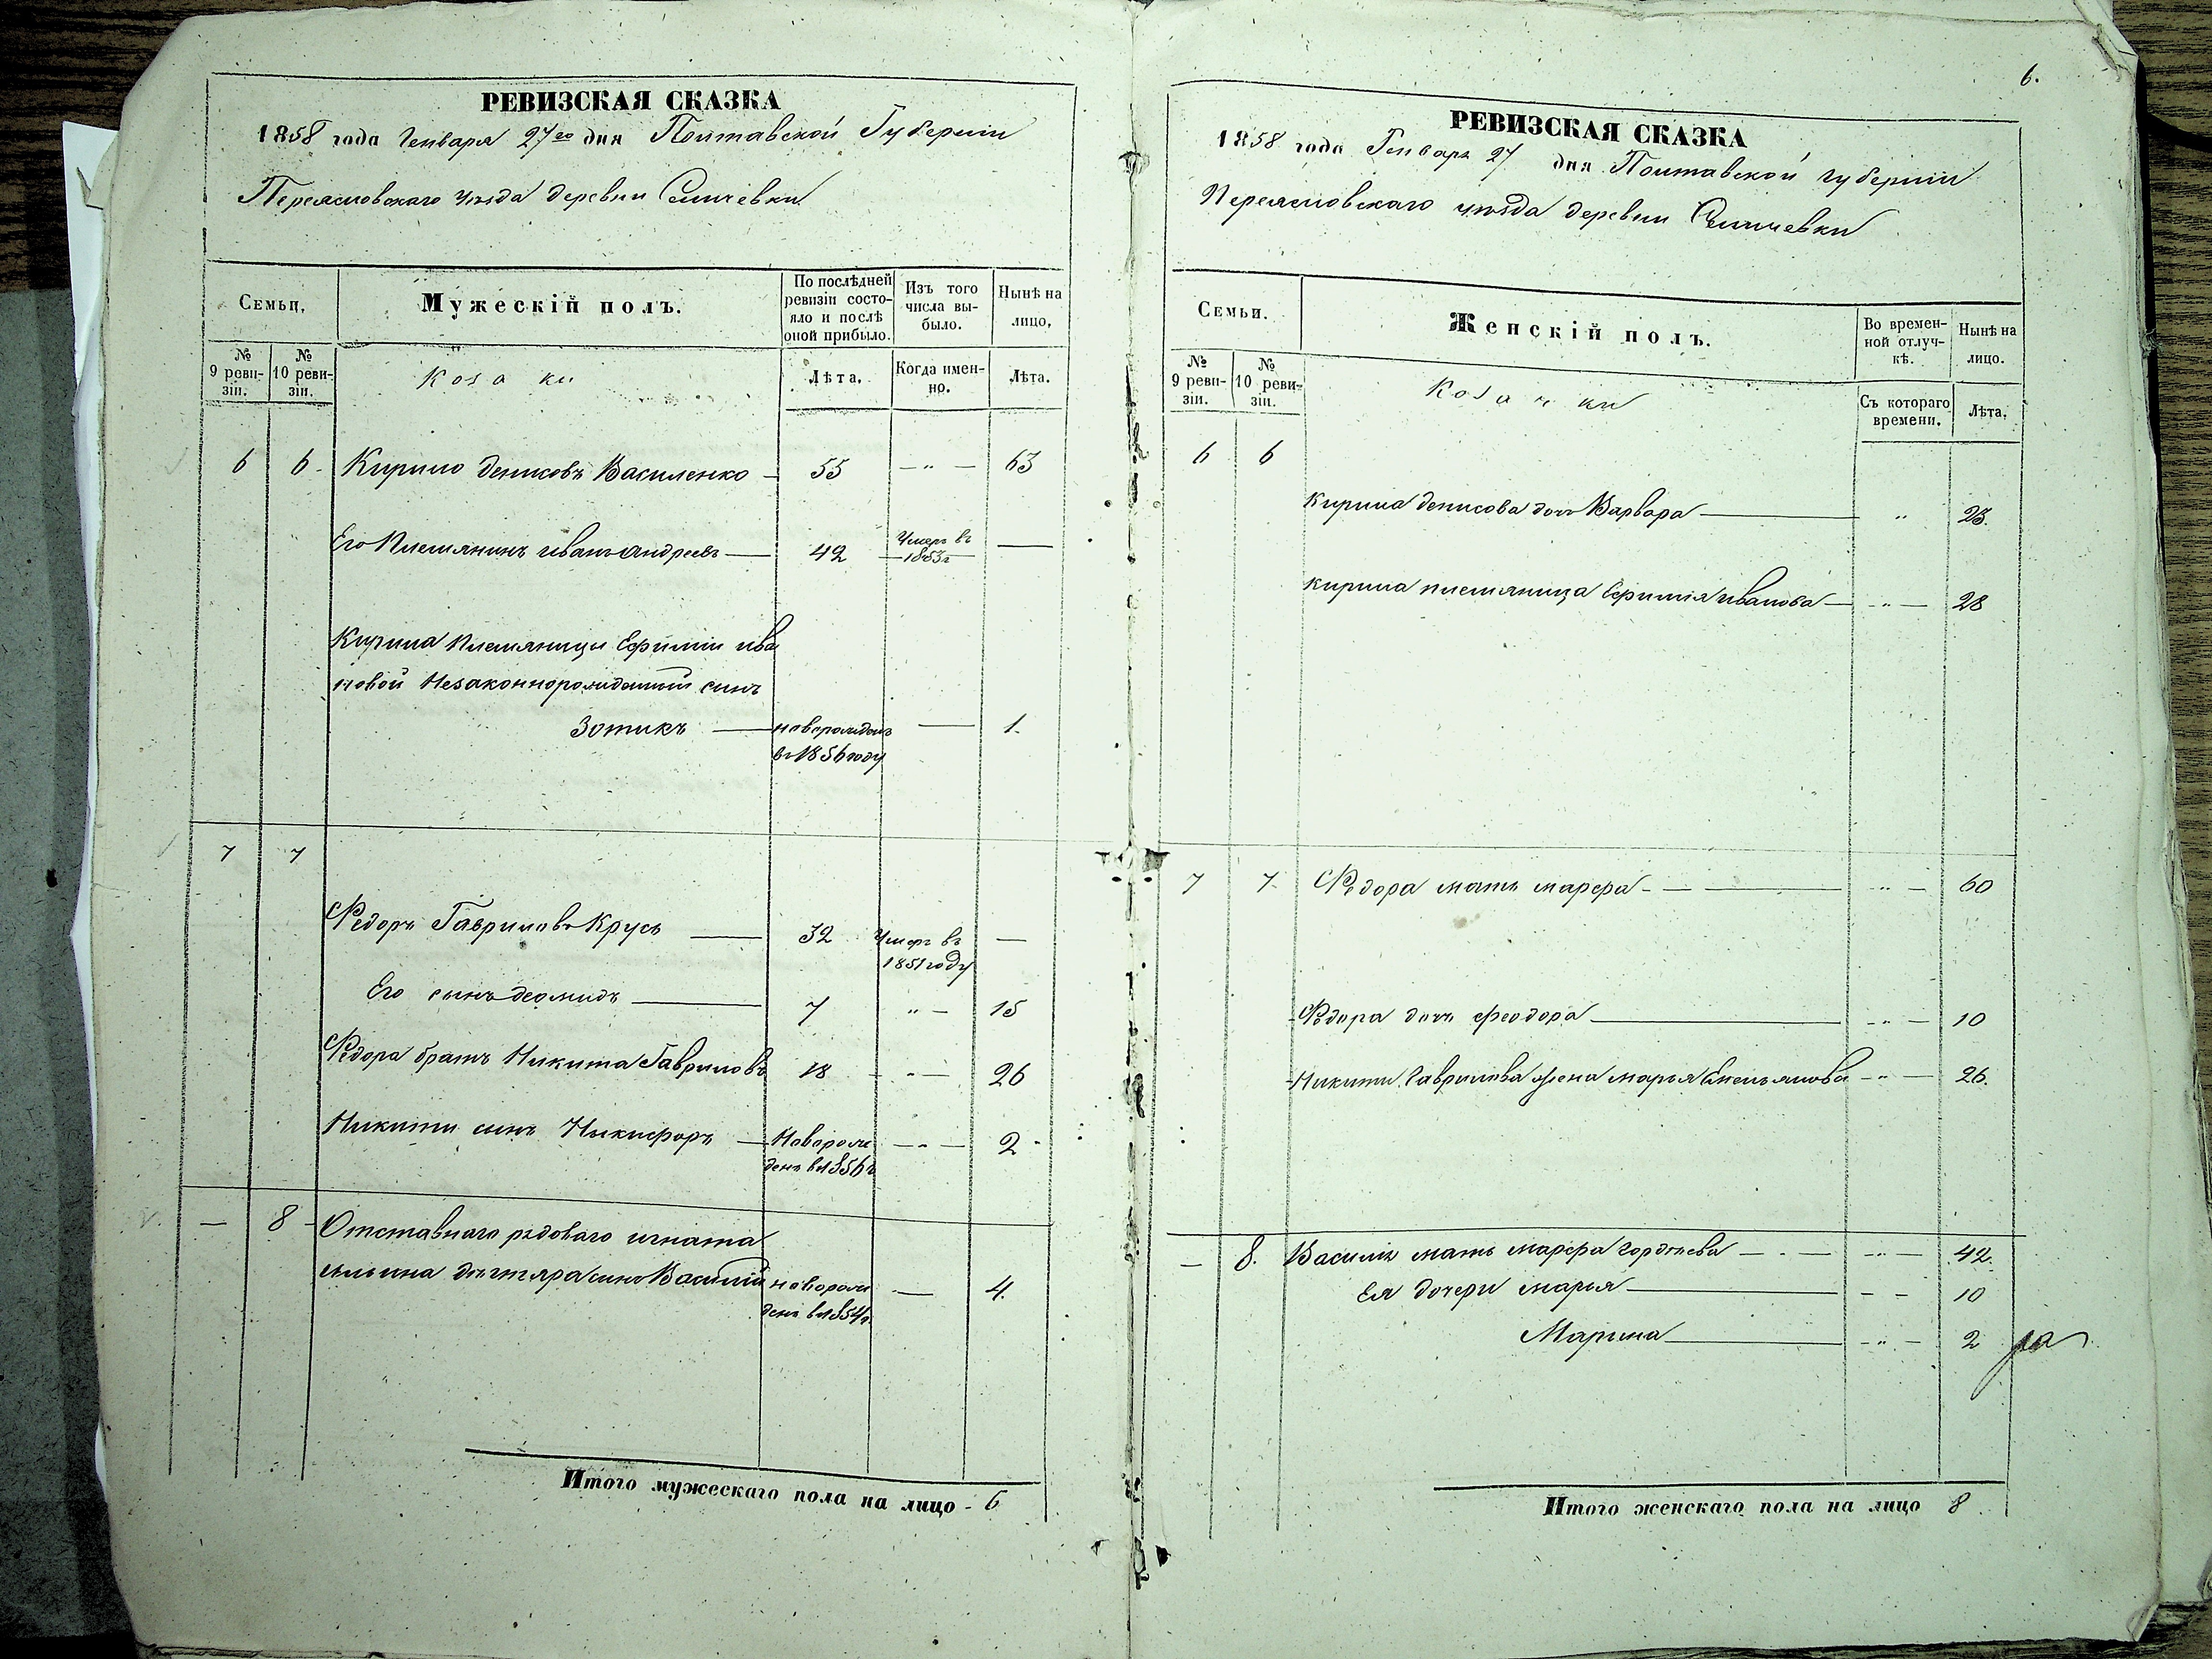 РЕВИЗСКАЯ СКАЗКА
1858 года Генваря 27го дня Полтавской Губерніи
Переяславскаго уѣзда деревни
Семьи.
Мужескій полъ.
По послѣдней ревизіи состояло и послѣ оной прибыло.
Изъ того числа выбыло.
Нынѣ на лицо.
№ 9 ревизіи.
№ 10 ревизіи.
Козаки
Лѣта.
Когда именно.
Лѣта.
6 6 Кирило Денисовъ Василенко 55 — „ — 63
Его Племянникъ иванъ андреевъ 42 Умеръ въ 1853г —
Кирила племяницы Ефиміи ива
новой Незаконнорожденный сынъ
Зотикъ новорожденъ — 1.
въ 1856 году
7 7
Федоръ Гавриловъ Крусь 32 Умеръ въ —
1851 году
Его сынъ деомидъ 7 „ — 15
Федора братъ Никита Гавриловъ 18 - „ — 26
Никиты сынъ Никифоръ Новорож — „ — 2
денъ в 1856г
— 8 Отставнаго рядоваго игната
ильина дѣгтяра сынъ Василій новорож — 4.
денъ в 1854г.
Итого мужескаго пола на лицо - 6
6.
РЕВИЗСКАЯ СКАЗКА
1858 года Генваря 27 дня Полтавской губерніи
Переяславскаго уѣзда деревни
Семьи.
Женскій полъ.
Во временной отлучкѣ.
Нынѣ на лицо.
№ 9 ревизіи.
№ 10 ревизіи.
Козачки
Съ котораго времени.
Лѣта.
6 6
Кирила денисова дочь Варвара „ 23.
кирила племяница Ефимія иванова - „ — 28
7 7. Федора мать марфа - „ — 60
Федора дочь феодора - „ — 10
Никиты Гаврилова жена марья Емельянова - „ — 26.
— 8. Василія мать марфа гордѣева - „ — 42.
Ея дочери марья - - 10
Марина - „ — 2
Итого женскаго пола на лицо 8.